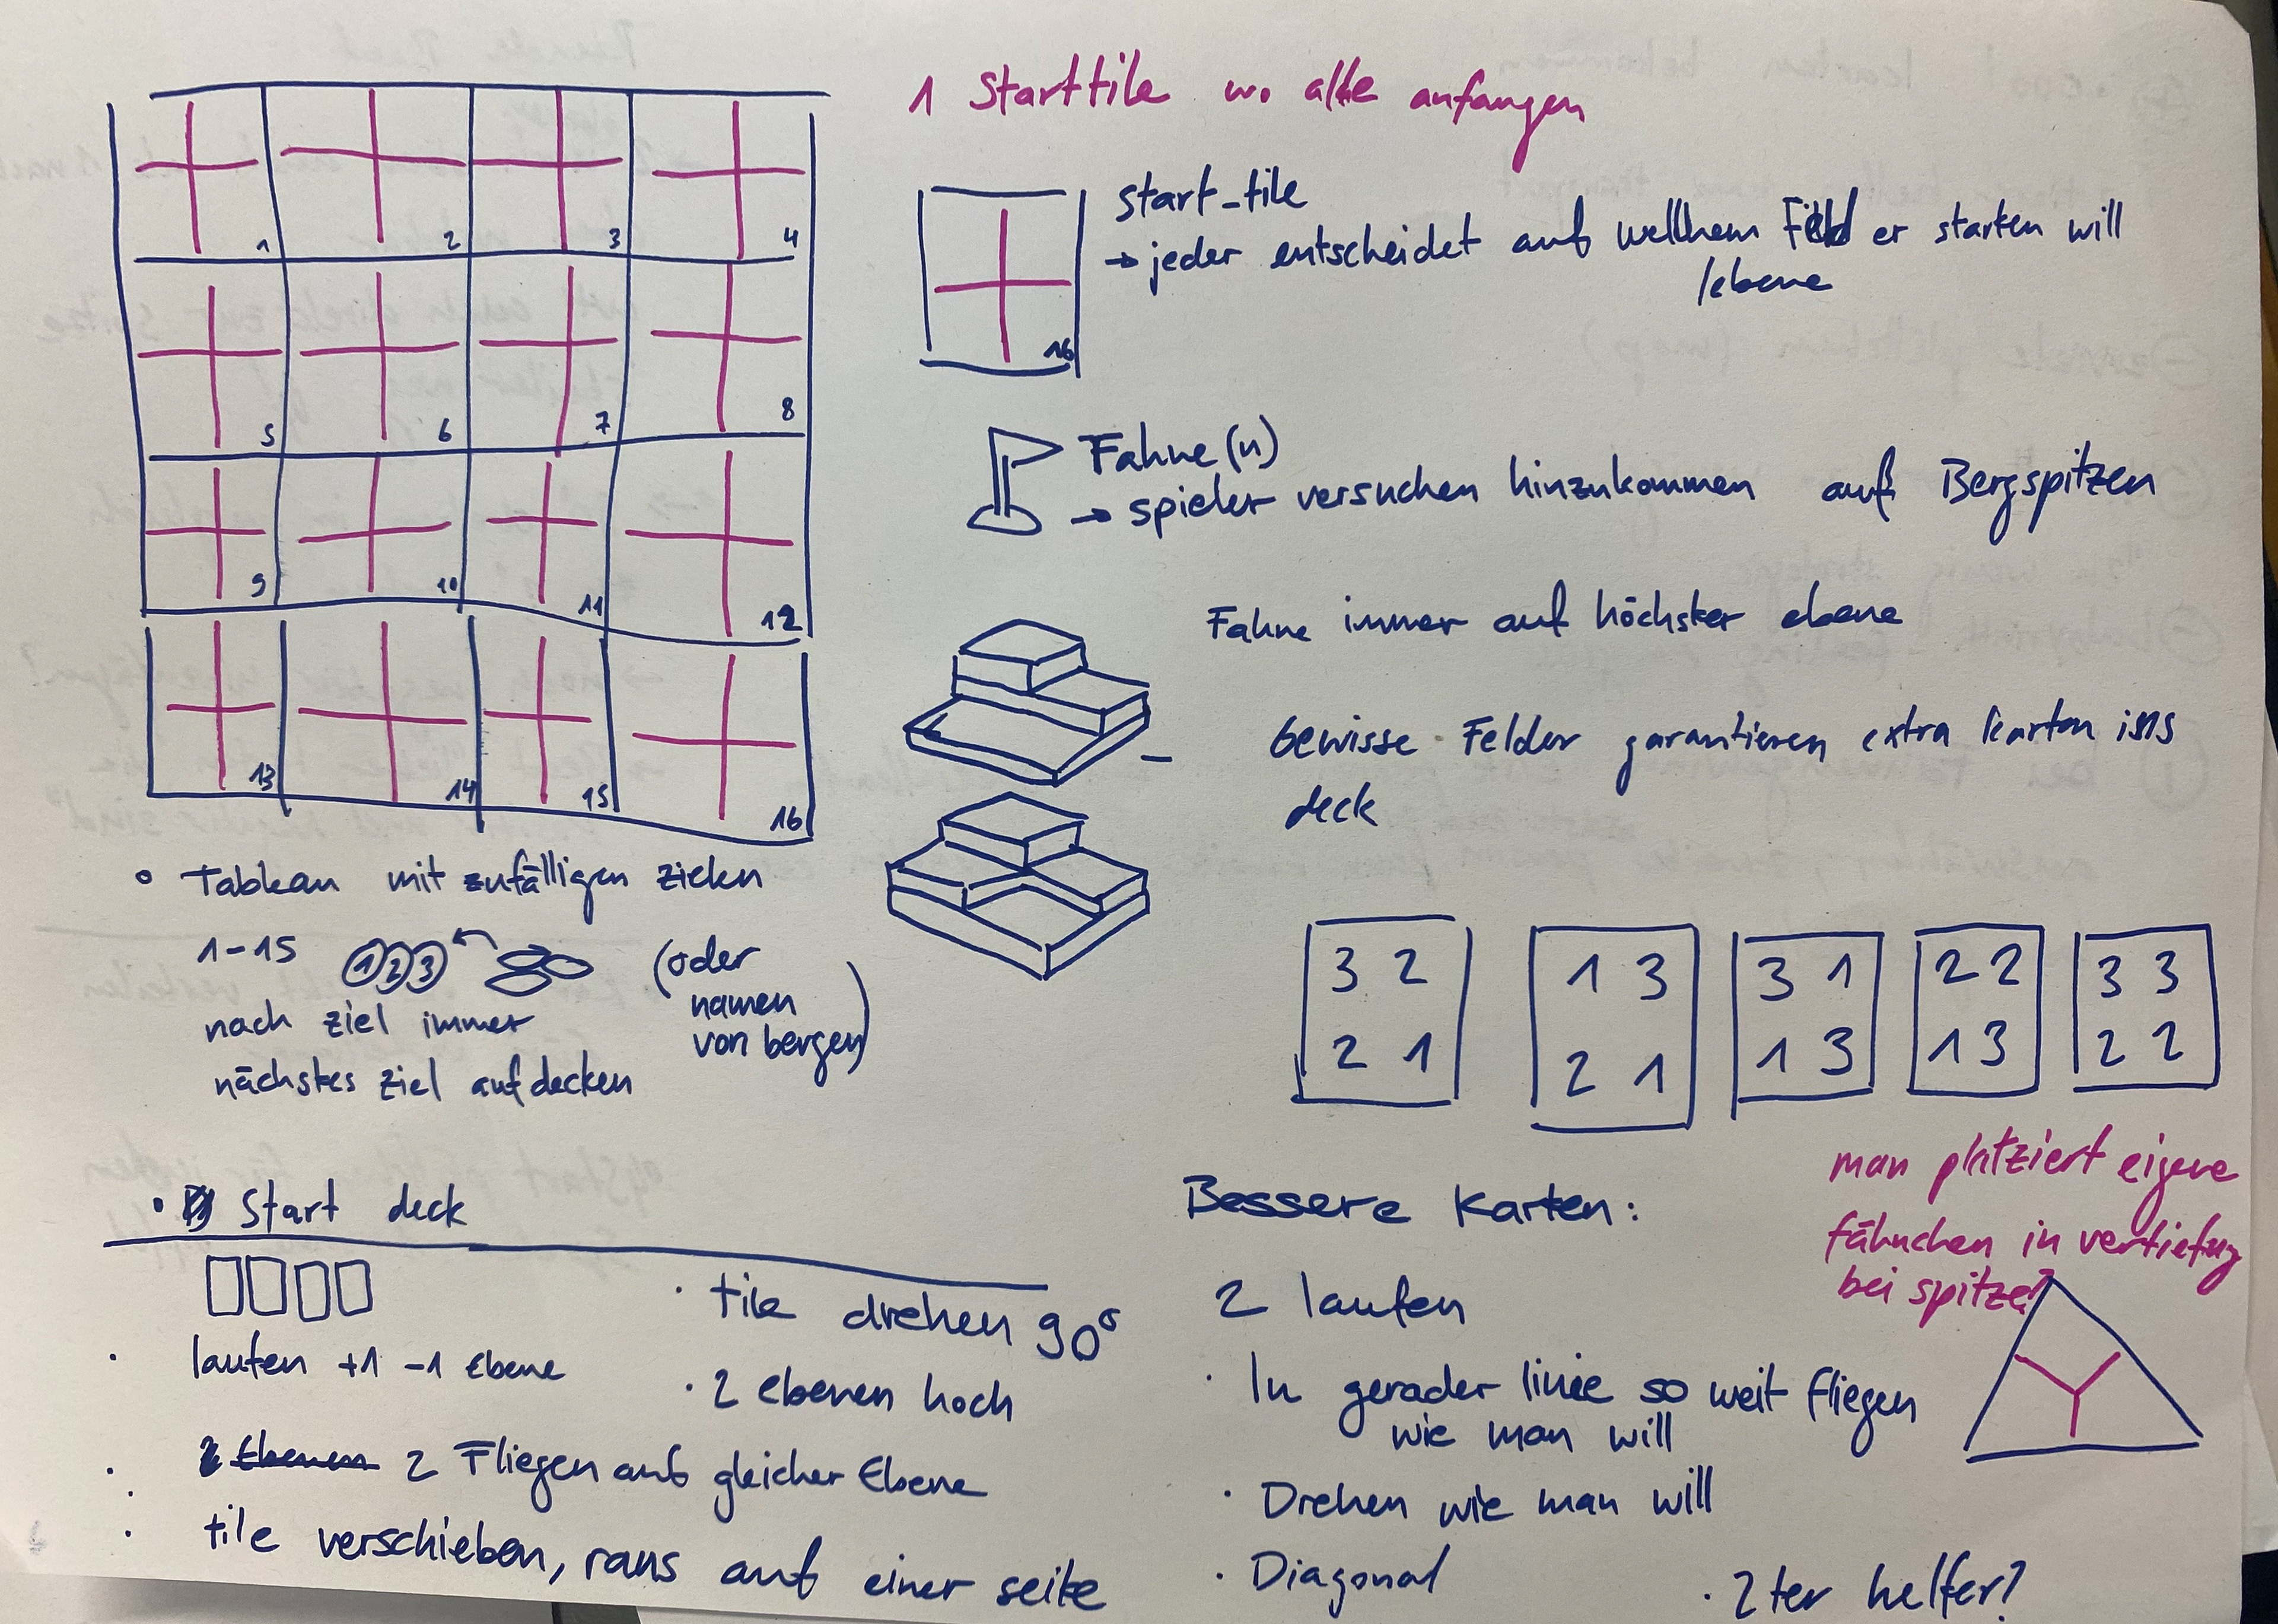 1 Starttile wo alle anfangen
1 2 3 4
5 6 7 8
9 10 11 12
13 14 15 16
start-tile
→ jeder entscheidet auf wellhem Feld er starten will
/ebene
16
Fahne(n)
→ spieler versuchen hinzukommen auf Bergspitzen
Fahne immer auf höchster ebene
Gewisse Felder garantieren extra karten ins
deck
• Tableau mit zufälligen zielen
1-15 1 2 3 (oder
namen
von bergen)
nach ziel immer
nächstes ziel aufdecken
3 2
2 1
1 3
2 1
3 1
1 3
2 2
1 3
3 3
2 2
man platziert eigene
fähnchen in vertiefung
bei spitze
• Start deck
• laufen +1 -1 Ebene
• 2 Ebenen 2 Fliegen auf gleicher Ebene
• tile verschieben, raus auf einer seite
• tile drehen 90°
• 2 ebenen hoch
Bessere Karten:
2 laufen
• In gerader linie so weit fliegen
wie man will
• Drehen wie man will
• Diagonal
• 2ter helfer?